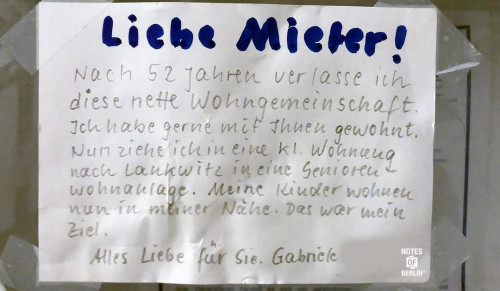 Liebe Mieter!
Nach 52 Jahren verlasse ich
diese nette Wohngemeinschaft.
Ich habe gerne mit Ihnen gewohnt.
Nun ziehe ich in eine kl. Wohnung
nach Lankwitz in eine Senioren
wohnanlage. Meine Kinder wohnen
nun in meiner Nähe. Das war mein
Ziel.
Alles Liebe für Sie. Gabriele
NOTES
OF
BERLIN